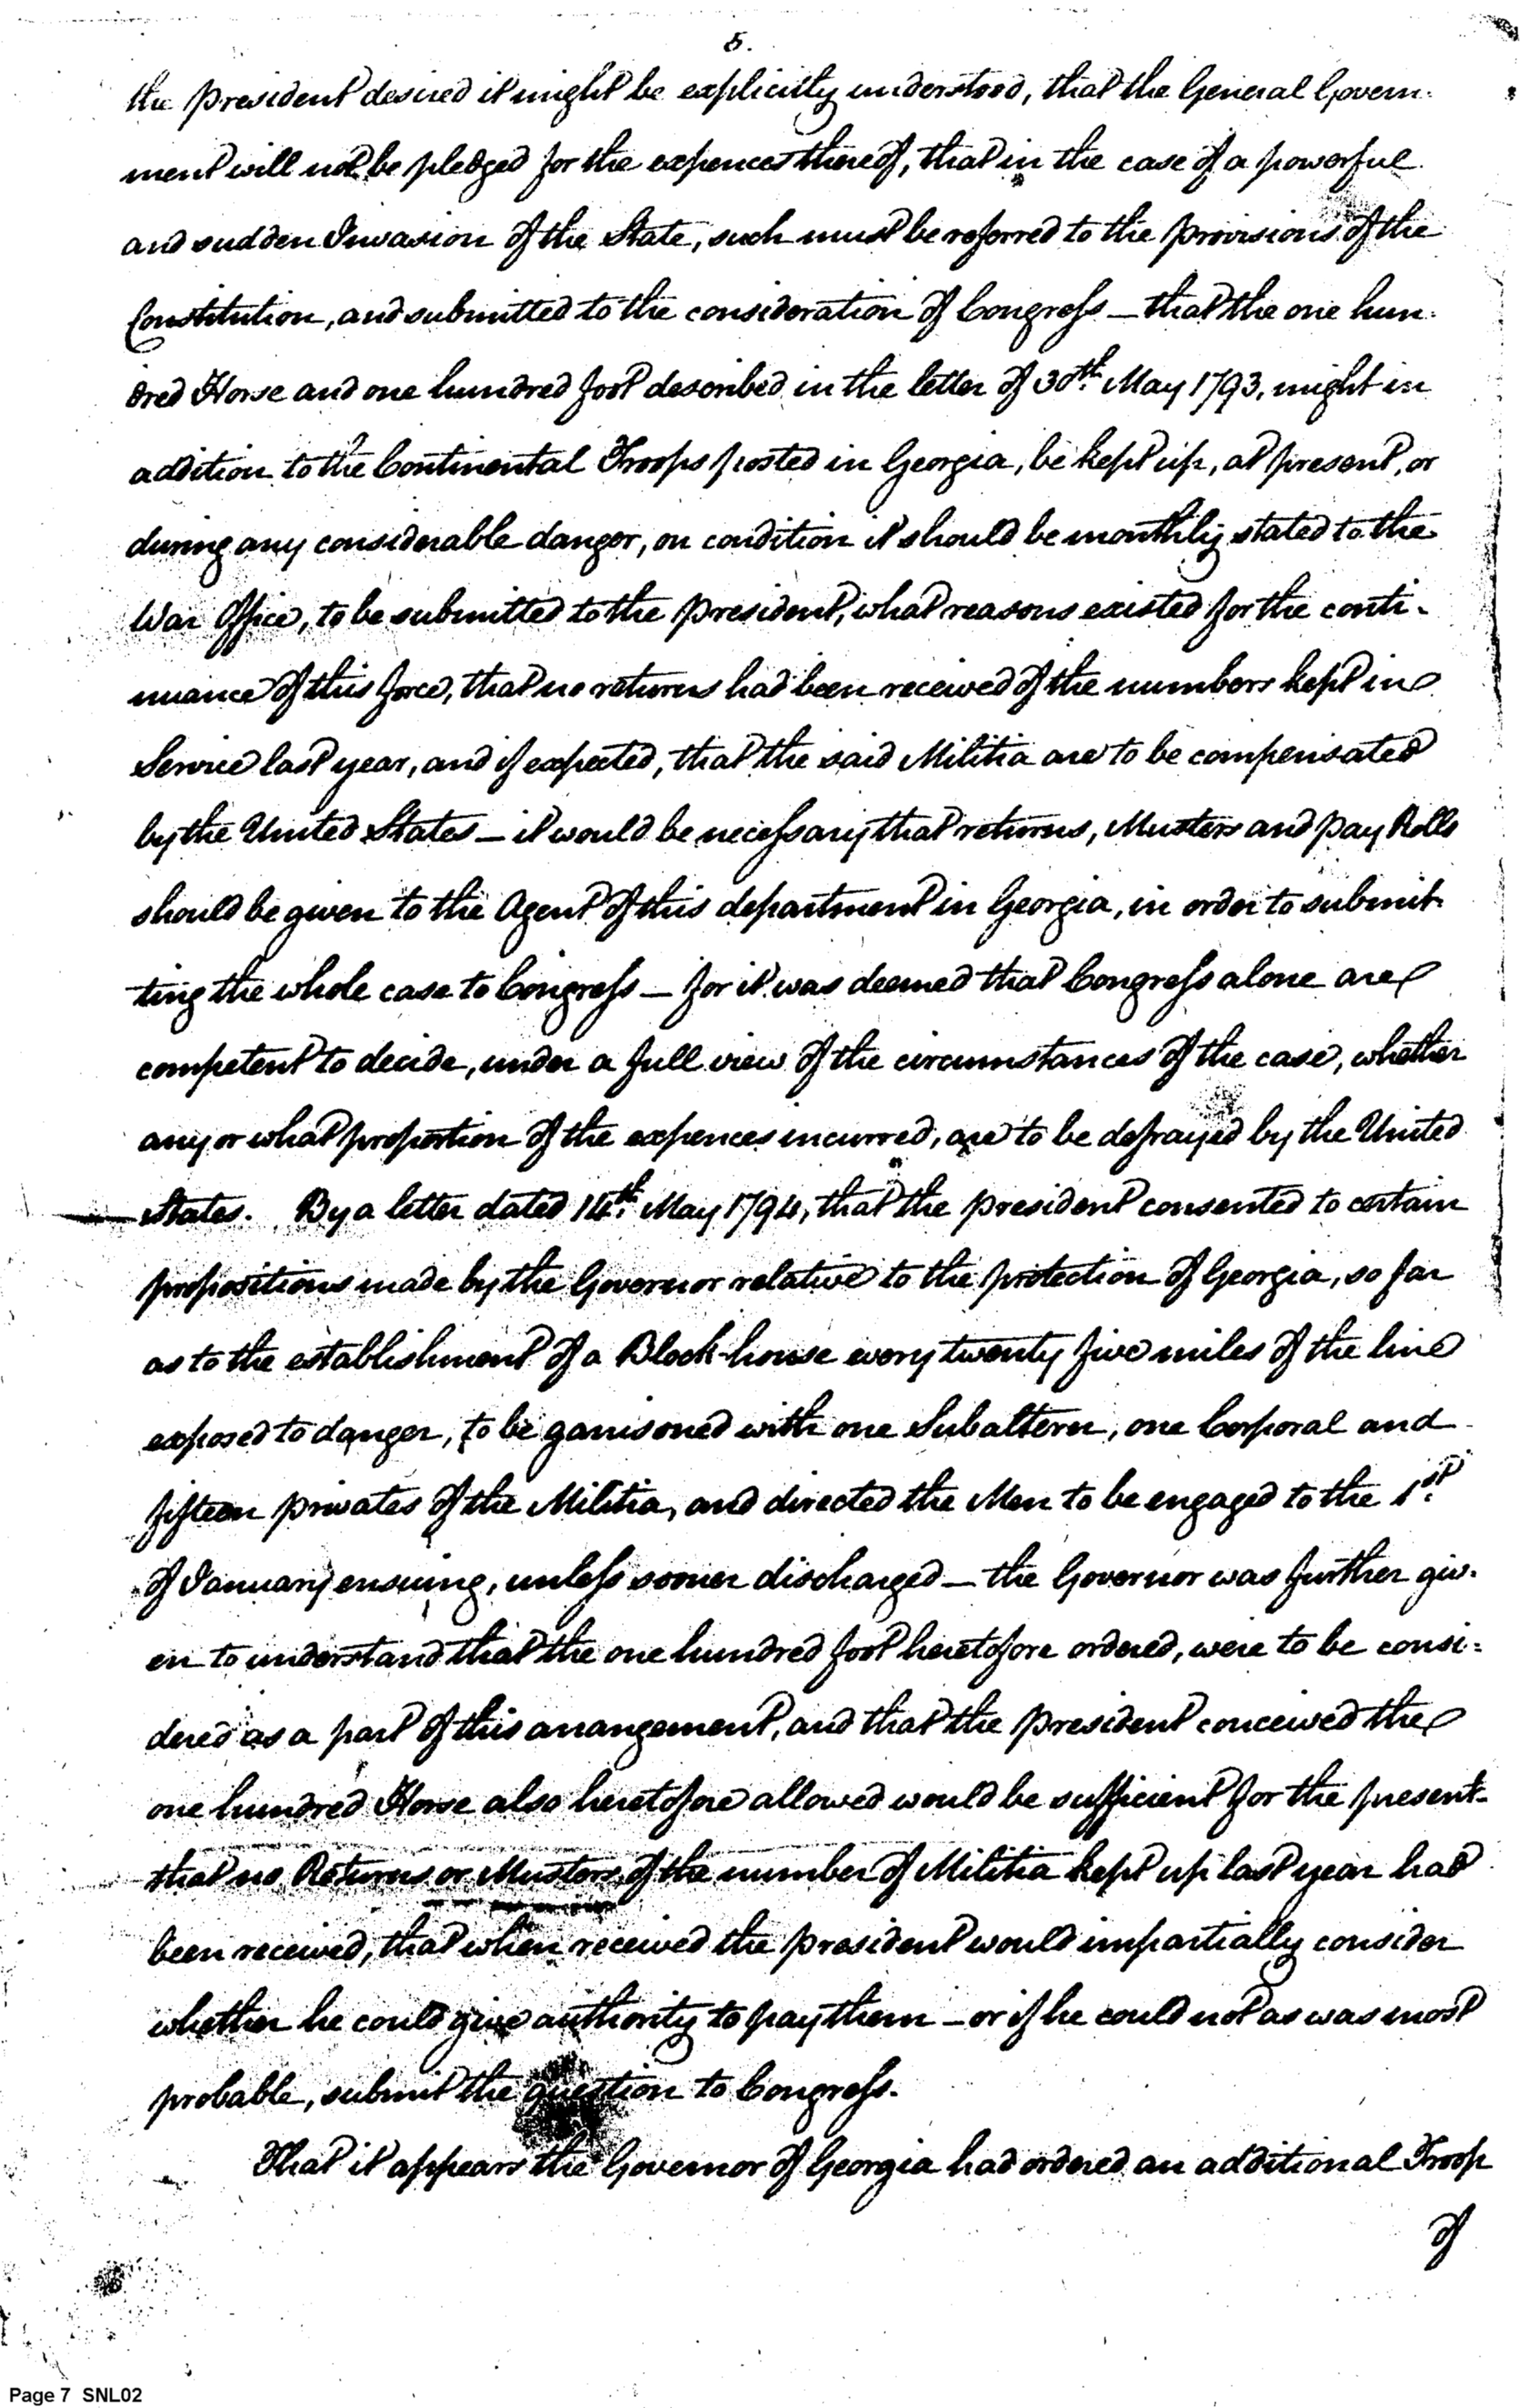 5.
the president desired it might be explicitly understood, that the General Govern-
ment will not be pledged for the expences thereof, that in the case of a powerful
and sudden Invasion of the State, such must be referred to the provisions of the
Constitution, and submitted to the consideration of Congress — that the one hun-
dred Horse and one hundred foot described in the letter of 30th May 1793, might in
addition to the Continental Troops posted in Georgia, be kept up, at present, or
during any considerable danger, on condition it should be monthly stated to the
War Office, to be submitted to the president, what reasons existed for the conti-
nuance of this force, that no returns had been received of the numbers kept in
Service last year, and if expected, that the said Militia are to be compensated
by the United States — it would be necessary that returns, Musters and pay Rolls
should be given to the Agent of this department in Georgia, in order to submit-
ting the whole case to Congress — for it was deemed that Congress alone are
competent to decide, under a full view of the circumstances of the case, whether
any or what proportion of the expences incurred, are to be defrayed by the United
States. By a letter dated 14th May 1794, that the president consented to certain
propositions made by the Governor relative to the protection of Georgia, so far
as to the establishment of a Block-house every twenty five miles of the line
exposed to danger, to be garrisoned with one Subaltern, one Corporal and
fifteen privates of the Militia, and directed the Men to be engaged to the 1st
of January ensuing, unless sooner discharged — the Governor was further giv-
en to understand that the one hundred foot heretofore ordered, were to be consi-
dered as a part of this arrangement, and that the president conceived the
one hundred Horse also heretofore allowed would be sufficient for the present-
that no Returns or Musters of the number of Militia kept up last year had
been received, that when received the president would impartially consider
whether he could give authority to pay them — or if he could not as was most
probable, submit the question to Congress.
That it appears the Governor of Georgia had ordered an additional Troop
of
Page 7 SNL02